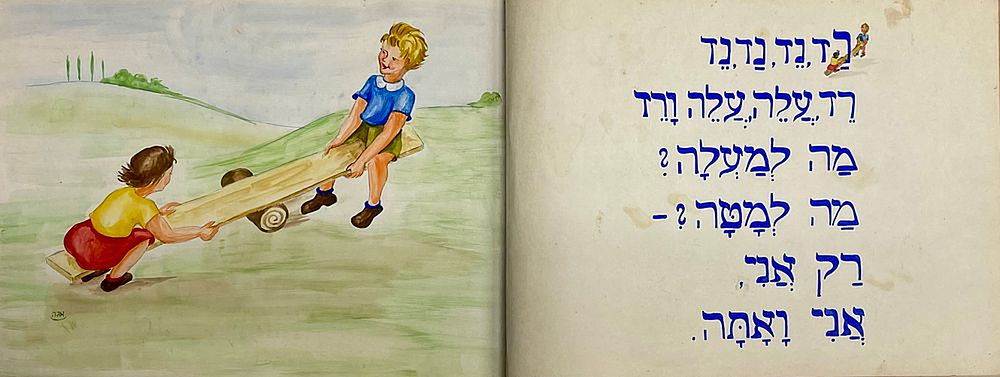 נַד,נֵד, נַד,נֵד
רֵד, עֲלֵה, עֲלֵה וָרֵד
מַה לְמַעְלָה?
מַה לְמָטָּה? –
רַק אֲנִי,
אֲנִי וָאָתָּה.